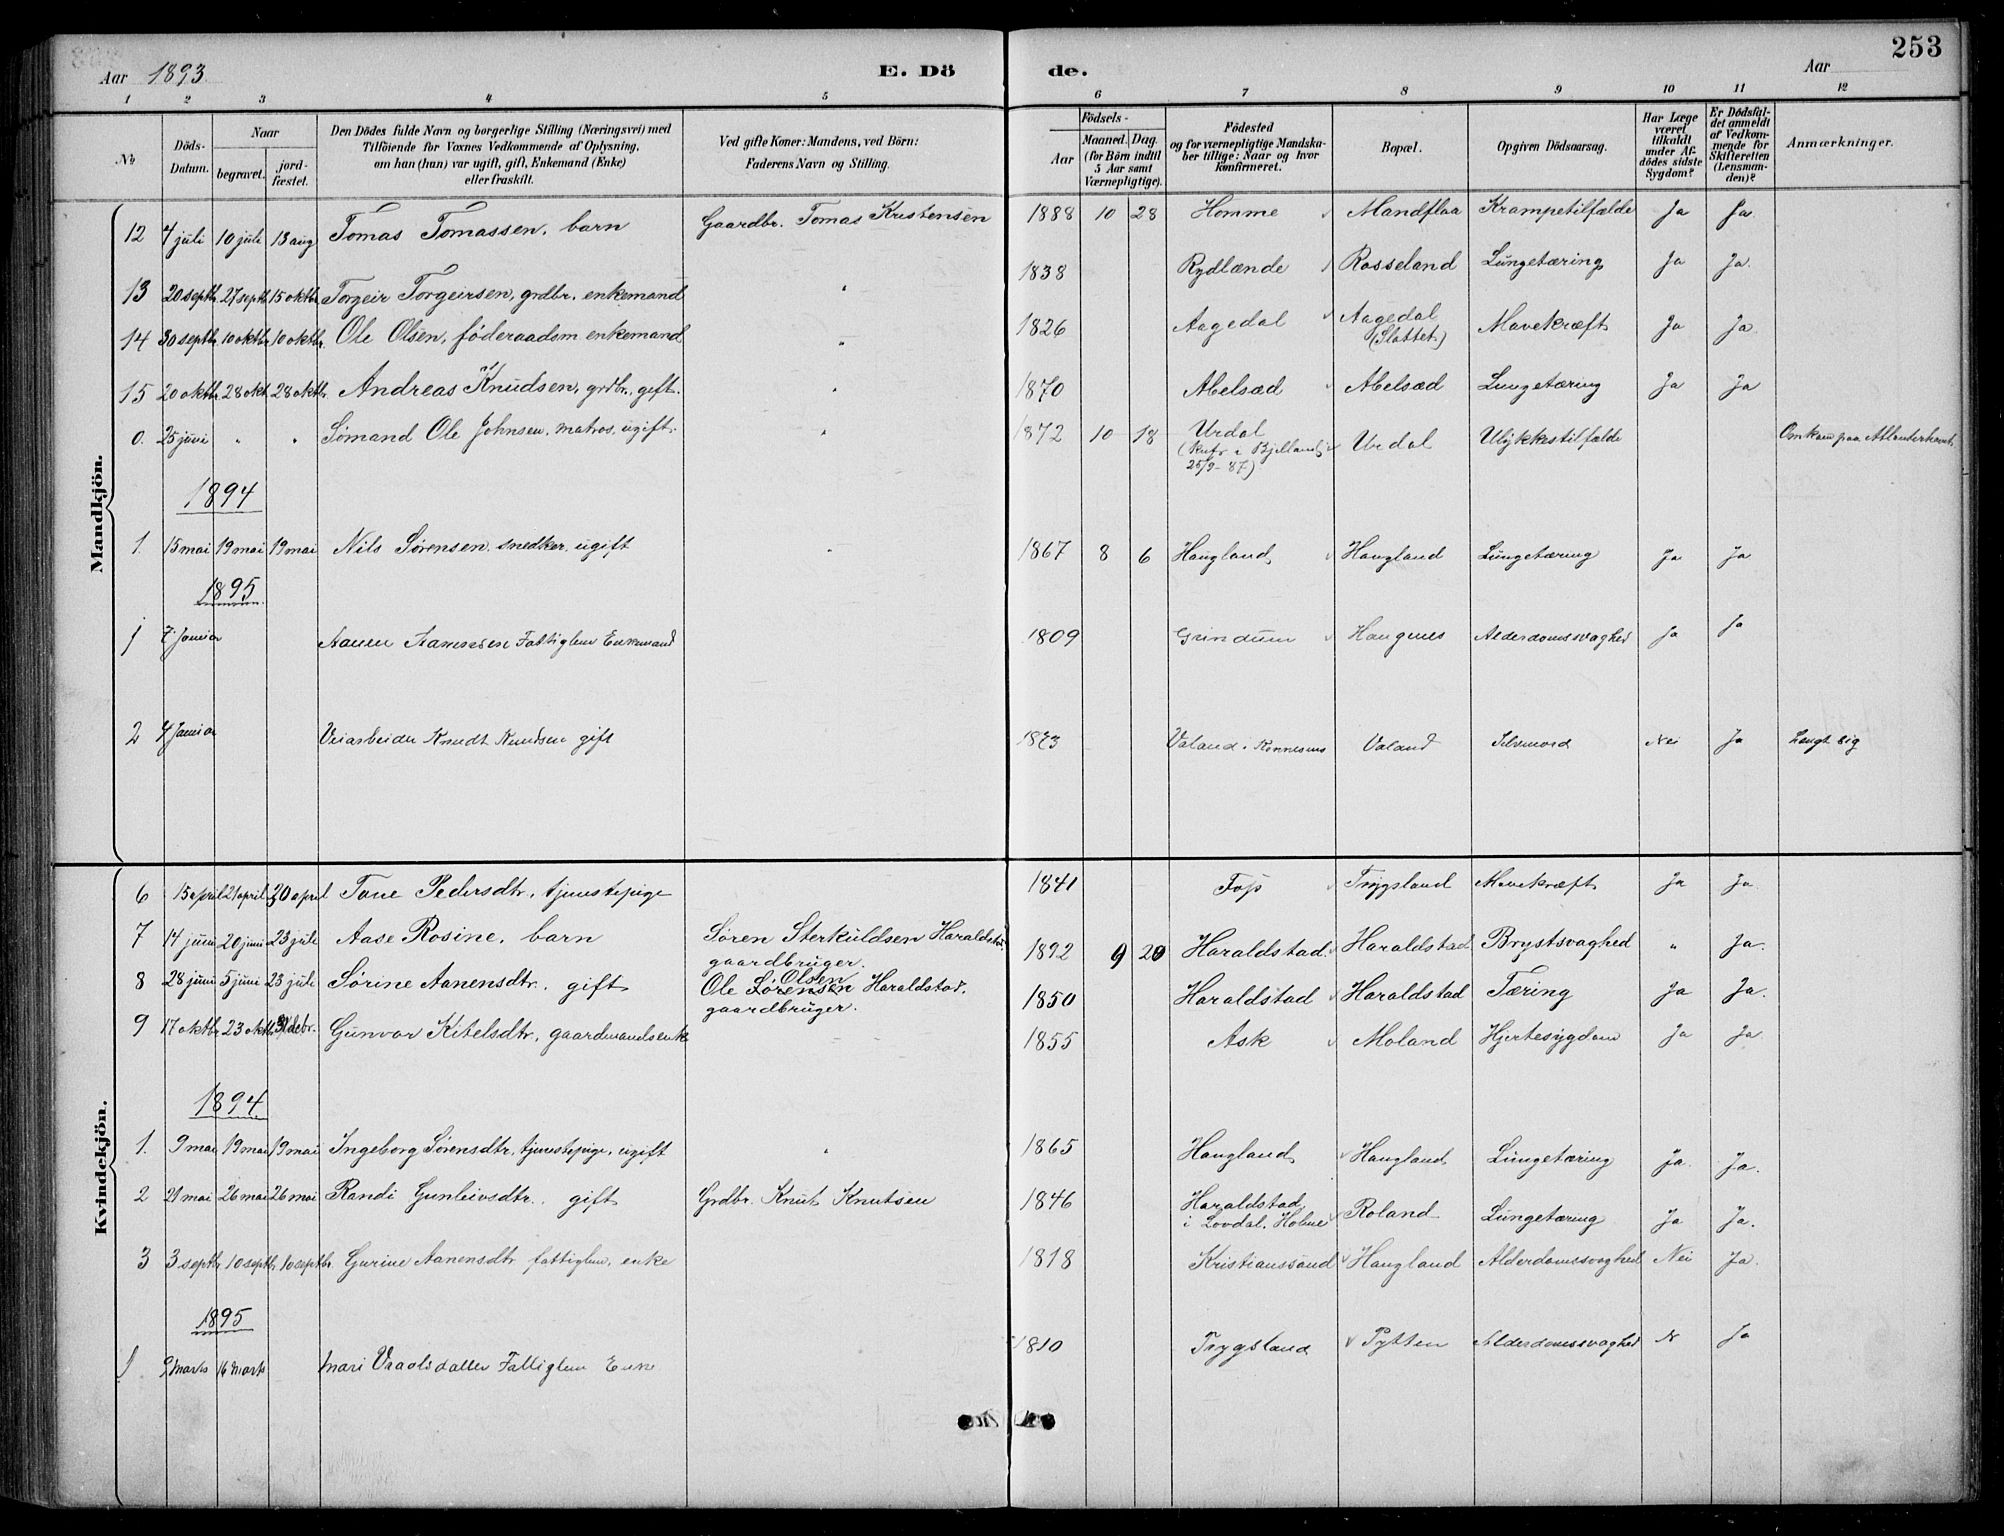 253
Aar 1893
E. Dö de.
Aar
1 2 3 4 5 6 7 8 9 10 11 12
No
Döds-Datum.
Naar
begravet.
jord-fæstet.
Den Dödes fulde Navn og borgerlige Stilling (Næringsvei) med
Tilföiende for Voxnes Vedkommende af Oplysning,
om han (hun) var ugift, gift, Enkemand (Enke)
eller fraskilt.
Ved gifte Koner: Mandens, ved Börn:
Faderens Navn og Stilling.
Födsels-
Aar
Maaned. Dag.
(for Börn indtil
5 Aar samt
Værnepligtige).
Födested
og for værnepligtige Mandska-
ber tillige: Naar og hvor
konfirmeret.
Bopæl.
Opgiven Dödsaarsag.
Har Læge
været
tilkaldt
under Af-
dödes sidste
Sygdom?
Er Dödsfal-
det anmeldt
af Vedkom-
mende for
Skifteretten
(Lensman-
den)?
Anmærkninger.
Mandkjön.
12 4 juli 10 juli 13 aug Tomas Tomassen, barn Gaardbr. Tomas Kristensen 1888 10 28 Homme Mandflaa Krampetilfælde Ja Ja
13 20 septbr 27 septb 15 oktbr Torgeir Torgeirsen, grdbr. enkemand " 1838 Rydlænde Rosseland Lungetæring Ja Ja.
14 30 septbr 10 oktbr 10 oktbr. Ole Olsen, föderaadsm enkemand " 1826 Aagedal Aagedal (Slottet) Mavekræft Ja Ja.
15 20 oktbr 28 okt. 28 oktbr. Andreas Knudsen, grdbr., gift. " 1870 Abelsæd Abelsæd Lungetæring Ja Ja
0. 25 juni " " Sømand Ole Johnsen, matros, ugift. " 1872 10 18 Urdal Urdal Ulykkestilfælde Omkom paa Atlanterhavet
25/9-87)
1894
1. 15 mai 19 mai 19 mai Nils Sørensen, snedker, ugift " 1867 8 6 Haugland, Haugland Lungetæring Ja Ja
1895
1 7 Januar Aanen Aanensen Fattiglem Enkemand 1809 Grindum Haugenes Alderdomssvaghed Ja Ja
2 4 Januar Veiarbeider Knudt Knudsen gift Valand i Valand Selvmord Nei Ja Hengt sig
Kvindekjön.
6 15 april 21 april 30 april Tone Pedersdtr, tjenestepige 1841 Foss Trygsland Mavekræft Ja Ja.
7 14 juni 20 juni 23 juli Aase Rosine, barn Søren Sterkuldsen Haraldstad 1892 9 20 Haraldstad. Haraldstad Brystsvaghed " Ja.
gaardbruger.
8 28 juni 5 juni 23 juli Sørine Aanensdtr. gift Ole Sørensen Olsen Haraldstad. 1850 Haraldstad Haraldstad Tæring Ja Ja.
gaardbruger.
9 17 oktbr 23 oktb. debr. Gunvor Kitelsdtr, gaardmandsenk 1855 Ask Moland Hjertesygdom Ja Ja
1894
1. 9 mai 19 mai 19 mai Ingeborg Sørensdtr, tjenestepige, ugift " 1865 Haugland, Haugland Lungetæring Ja. Ja.
2 21 mai 26 mai 26 mai Randi Gunleivsdtr. gift Grdbr. Knut Knutsen 1846 Haraldstad, i Lovdal. Holme Roland Lungetæring Ja Ja.
3 3 septbr 10 septb. 10 septbr. Gurine Aanensdtr fattiglem, enke 1818 Kristianssand Haugland Alderdomssvaghed Nei Ja.
1895
1 9 Marts 16 Marts Mari Vraalsdatter Fattiglem Enke 1810 Trygsland Pytten Alderdomssvaghed N Ja